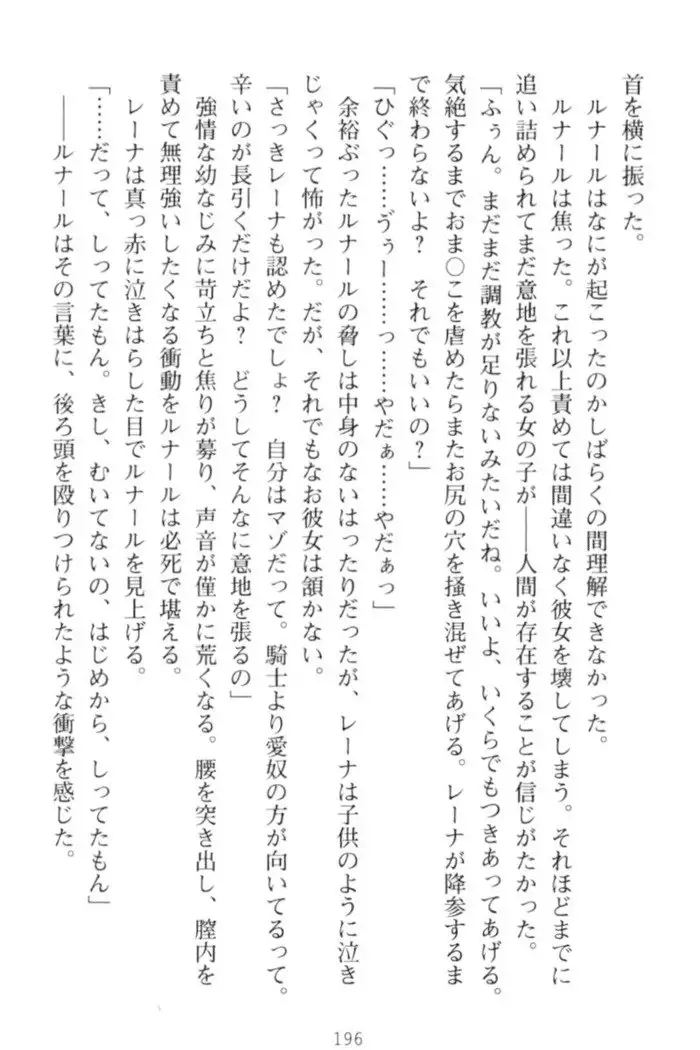 首を横に振った。
ルナールはなにが起こったのかしばらくの間理解できなかった。
ルナールは焦った。これ以上責めては間違いなく彼女を壊してしまう。それほどまでに
追い詰められてまだ意地を張れる女の子が――人間が存在することが信じがたかった。
「ふぅん。まだまだ調教が足りないみたいだね。いいよ、いくらでもつきあってあげる。
気絶するまでおま○こを虐めたらまたお尻の穴を掻き混ぜてあげる。レーナが降参するま
で終わらないよ？　それでもいいの？」
「ひぐっ……ゔぅー……っ……やだぁ……やだぁっ」
余裕ぶったルナールの脅しは中身のないはったりだったが、レーナは子供のように泣き
じゃくって怖がった。だが、それでもなお彼女は頷かない。
「さっきレーナも認めたでしょ？　自分はマゾだって。騎士より愛奴の方が向いてるって。
辛いのが長引くだけだよ？　どうしてそんなに意地を張るの」
強情な幼なじみに苛立ちと焦りが募り、声音が僅かに荒くなる。腰を突き出し、膣内を
責めて無理強いしたくなる衝動をルナールは必死で堪える。
レーナは真っ赤に泣きはらした目でルナールを見上げる。
「……だって、しってたもん。きし、むいてないの、はじめから、しってたもん」
――ルナールはその言葉に、後ろ頭を殴りつけられたような衝撃を感じた。
196